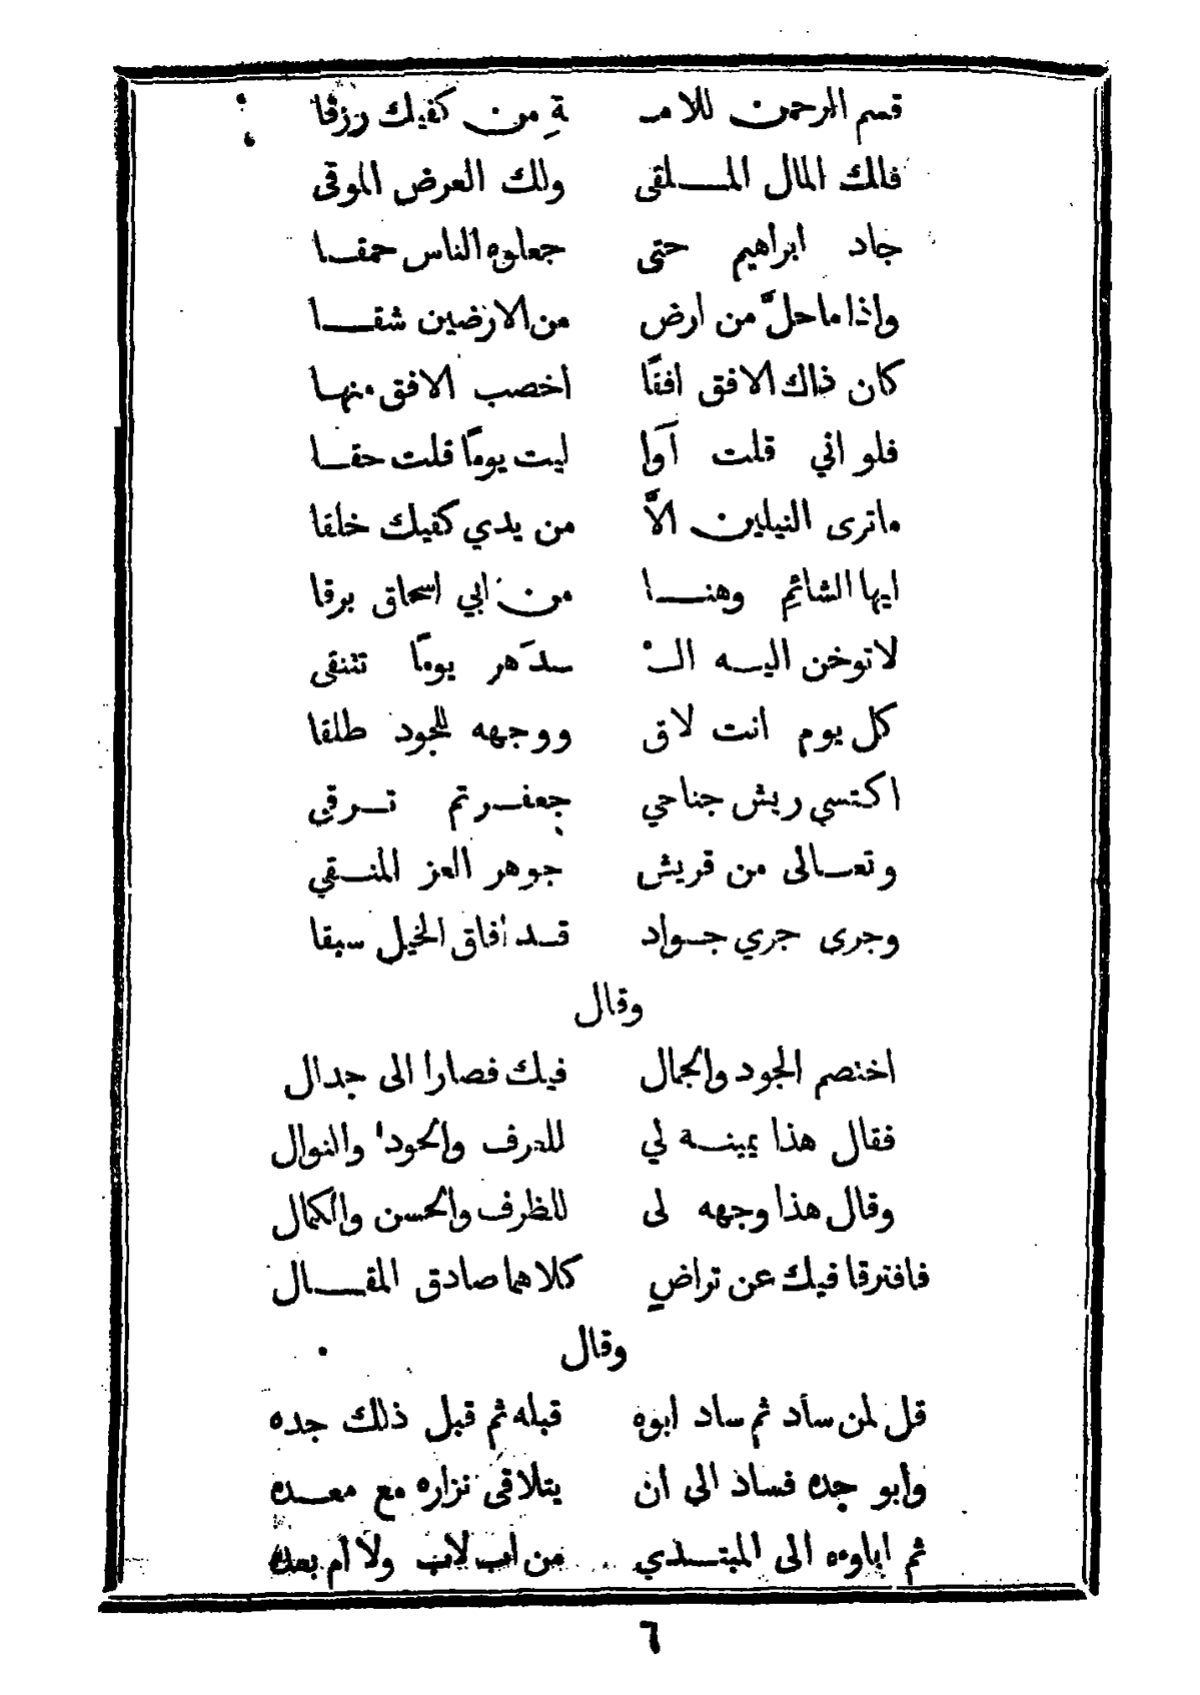 قسم الرحمن للامـ ـةِ من كفيك رزقا
فلك المال الملقى ولك العرض الموقى
جاد ابراهيم حتى جعلوه الناس حمقا
واذا ما حلَّ من ارض من الارضين شقا
كان ذاك الافق افقًا اخصب الافق منها
فلو اني قلت آوا ليت يومًا قلت حقا
ماترى النيلين الاَّ من يدي كفيك خلقا
ايها الشائمِ وهنا من ابي اسحاق برقا
لاتوخن اليه الـ ـدَهر يومًا تنتقى
كل يوم انت لاق ووجهه للجود طلقا
اكتسي ريش جناحي جعفر تم ترقي
وتعالى من قريش جوهر العز المنقي
وجرى جري جواد قد أفاق الخيل سبقا
وقال
اختصم الجود والجمال فيك فصارا الى جدال
فقال هذا يمينه لي للعرف والجود والنوال
وقال هذا وجهه لى للظرف والحسن والكمال
فافترقا فيك عن تراضٍ كلاهما صادق المقال
وقال
قل لمن ساد ثم ساد ابوه قبله ثم قبل ذلك جده
وابو جده فساد الى ان يتلاقى نزاره مع معده
ثم اباوه الى المبتدي من اب لاب ولا ام بعده
٦